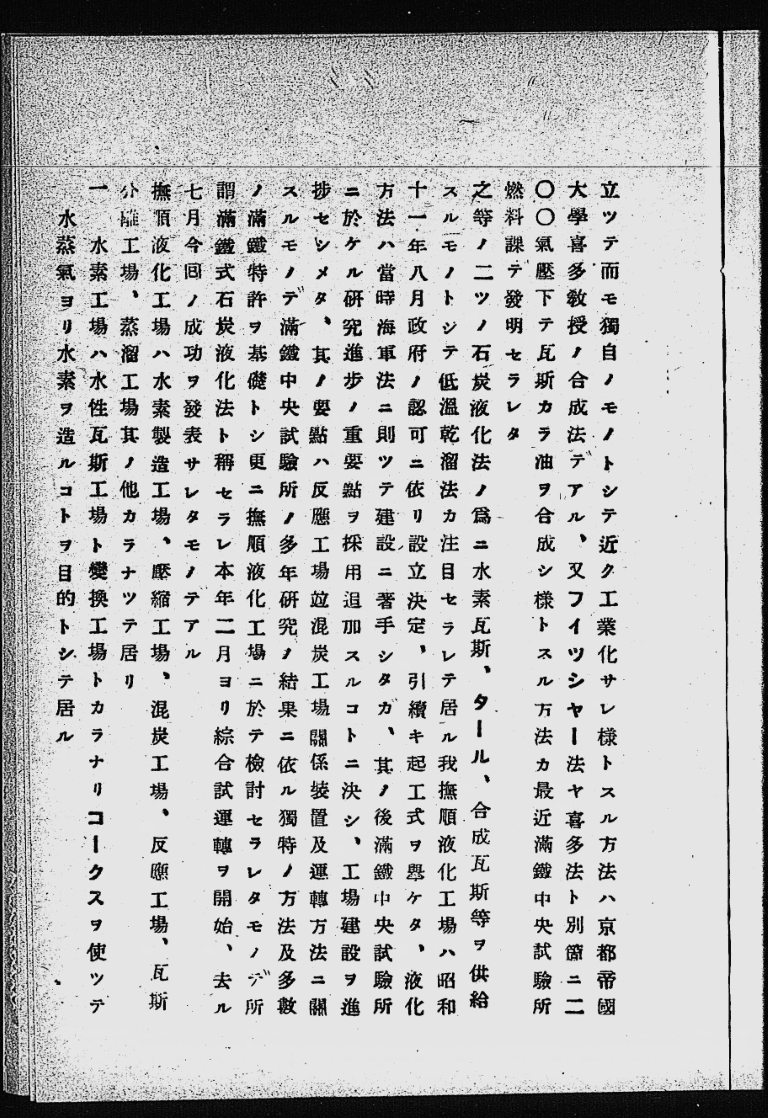 立ツテ而モ獨自ノモノトシテ近ク工業化サレ樣トスル方法ハ京都帝國
大學喜多教授ノ合成法デアル、又フイツシヤー法ヤ喜多法ト別箇ニ二
〇〇氣壓下テ瓦斯カラ油ヲ合成シ樣トスル方法カ最近滿鐵中央試驗所
燃料課テ發明セラレタ
之等ノ二ツノ石炭液化法ノ爲ニ水素瓦斯、タール、合成瓦斯等ヲ供給
スルモノトシテ低溫乾溜法カ注目セラレテ居ル我撫順液化工場ハ昭和
十一年八月政府ノ認可ニ依リ設立決定、引續キ起工式ヲ擧ケタ、液化
方法ハ當時海軍法ニ則ツテ建設ニ著手シタカ、其ノ後滿鐵中央試驗所
ニ於ケル研究進步ノ重要點ヲ採用追加スルコトニ決シ、工場建設ヲ進
捗セシメタ、其ノ要點ハ反應工場竝混炭工場關係裝置及運轉方法ニ關
スルモノデ滿鐵中央試驗所ノ多年研究ノ結果ニ依ル獨特ノ方法及多數
ノ滿鐵特許ヲ基礎トシ更ニ撫順液化工場ニ於テ檢討セラレタモノデ所
謂滿鐵式石炭液化法ト稱セラレ本年二月ヨリ綜合試運轉ヲ開始、去ル
七月今囘ノ成功ヲ發表サレタモノテアル
撫順液化工場ハ水素製造工場、壓縮工場、混炭工場、反應工場、瓦斯
分離工場、蒸溜工場其ノ他カラナツテ居リ
一 水素工場ハ水性瓦斯工場ト變換工場トカラナリコークスヲ使ツテ
水蒸氣ヨリ水素ヲ造ルコトヲ目的トシテ居ル